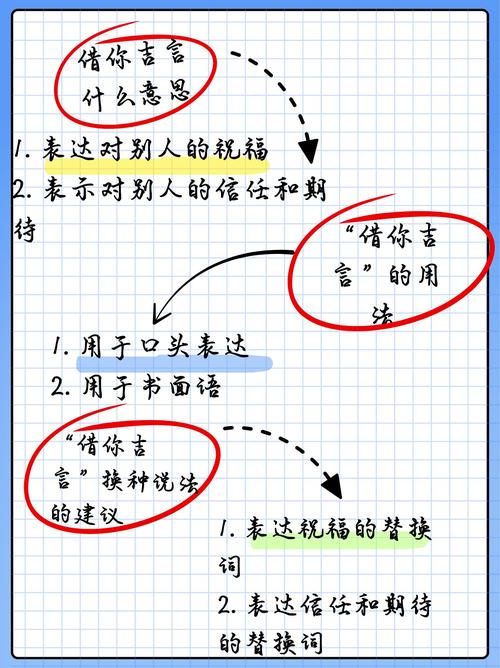 借你吉言
什么意思
1. 表达对别人的祝福
2. 表示对别人的信任和期
待
“借你吉
言”的用
法
1. 用于口头表达
2. 用于书面语
“借你吉
言”换种说法
的建议
1. 表达祝福的替换
词
2. 表达信任和期待
的替换词